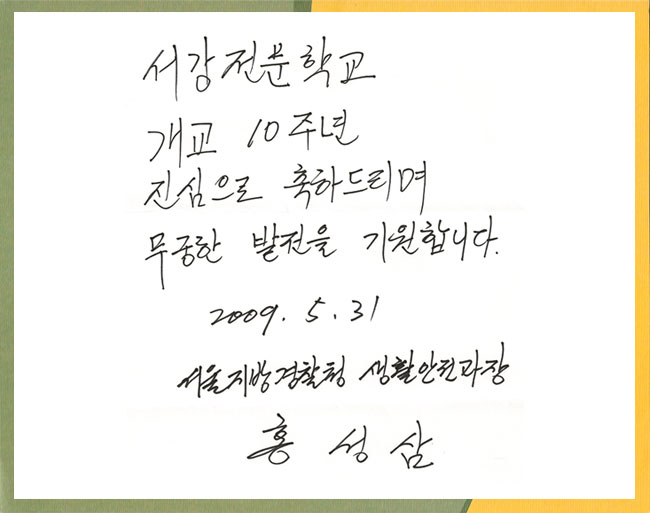 서강전문학교
개교 10주년
진심으로 축하드리며
무궁한 발전을 기원합니다.
2009. 5. 31
서울지방경찰청 생활안전과장
홍성삼